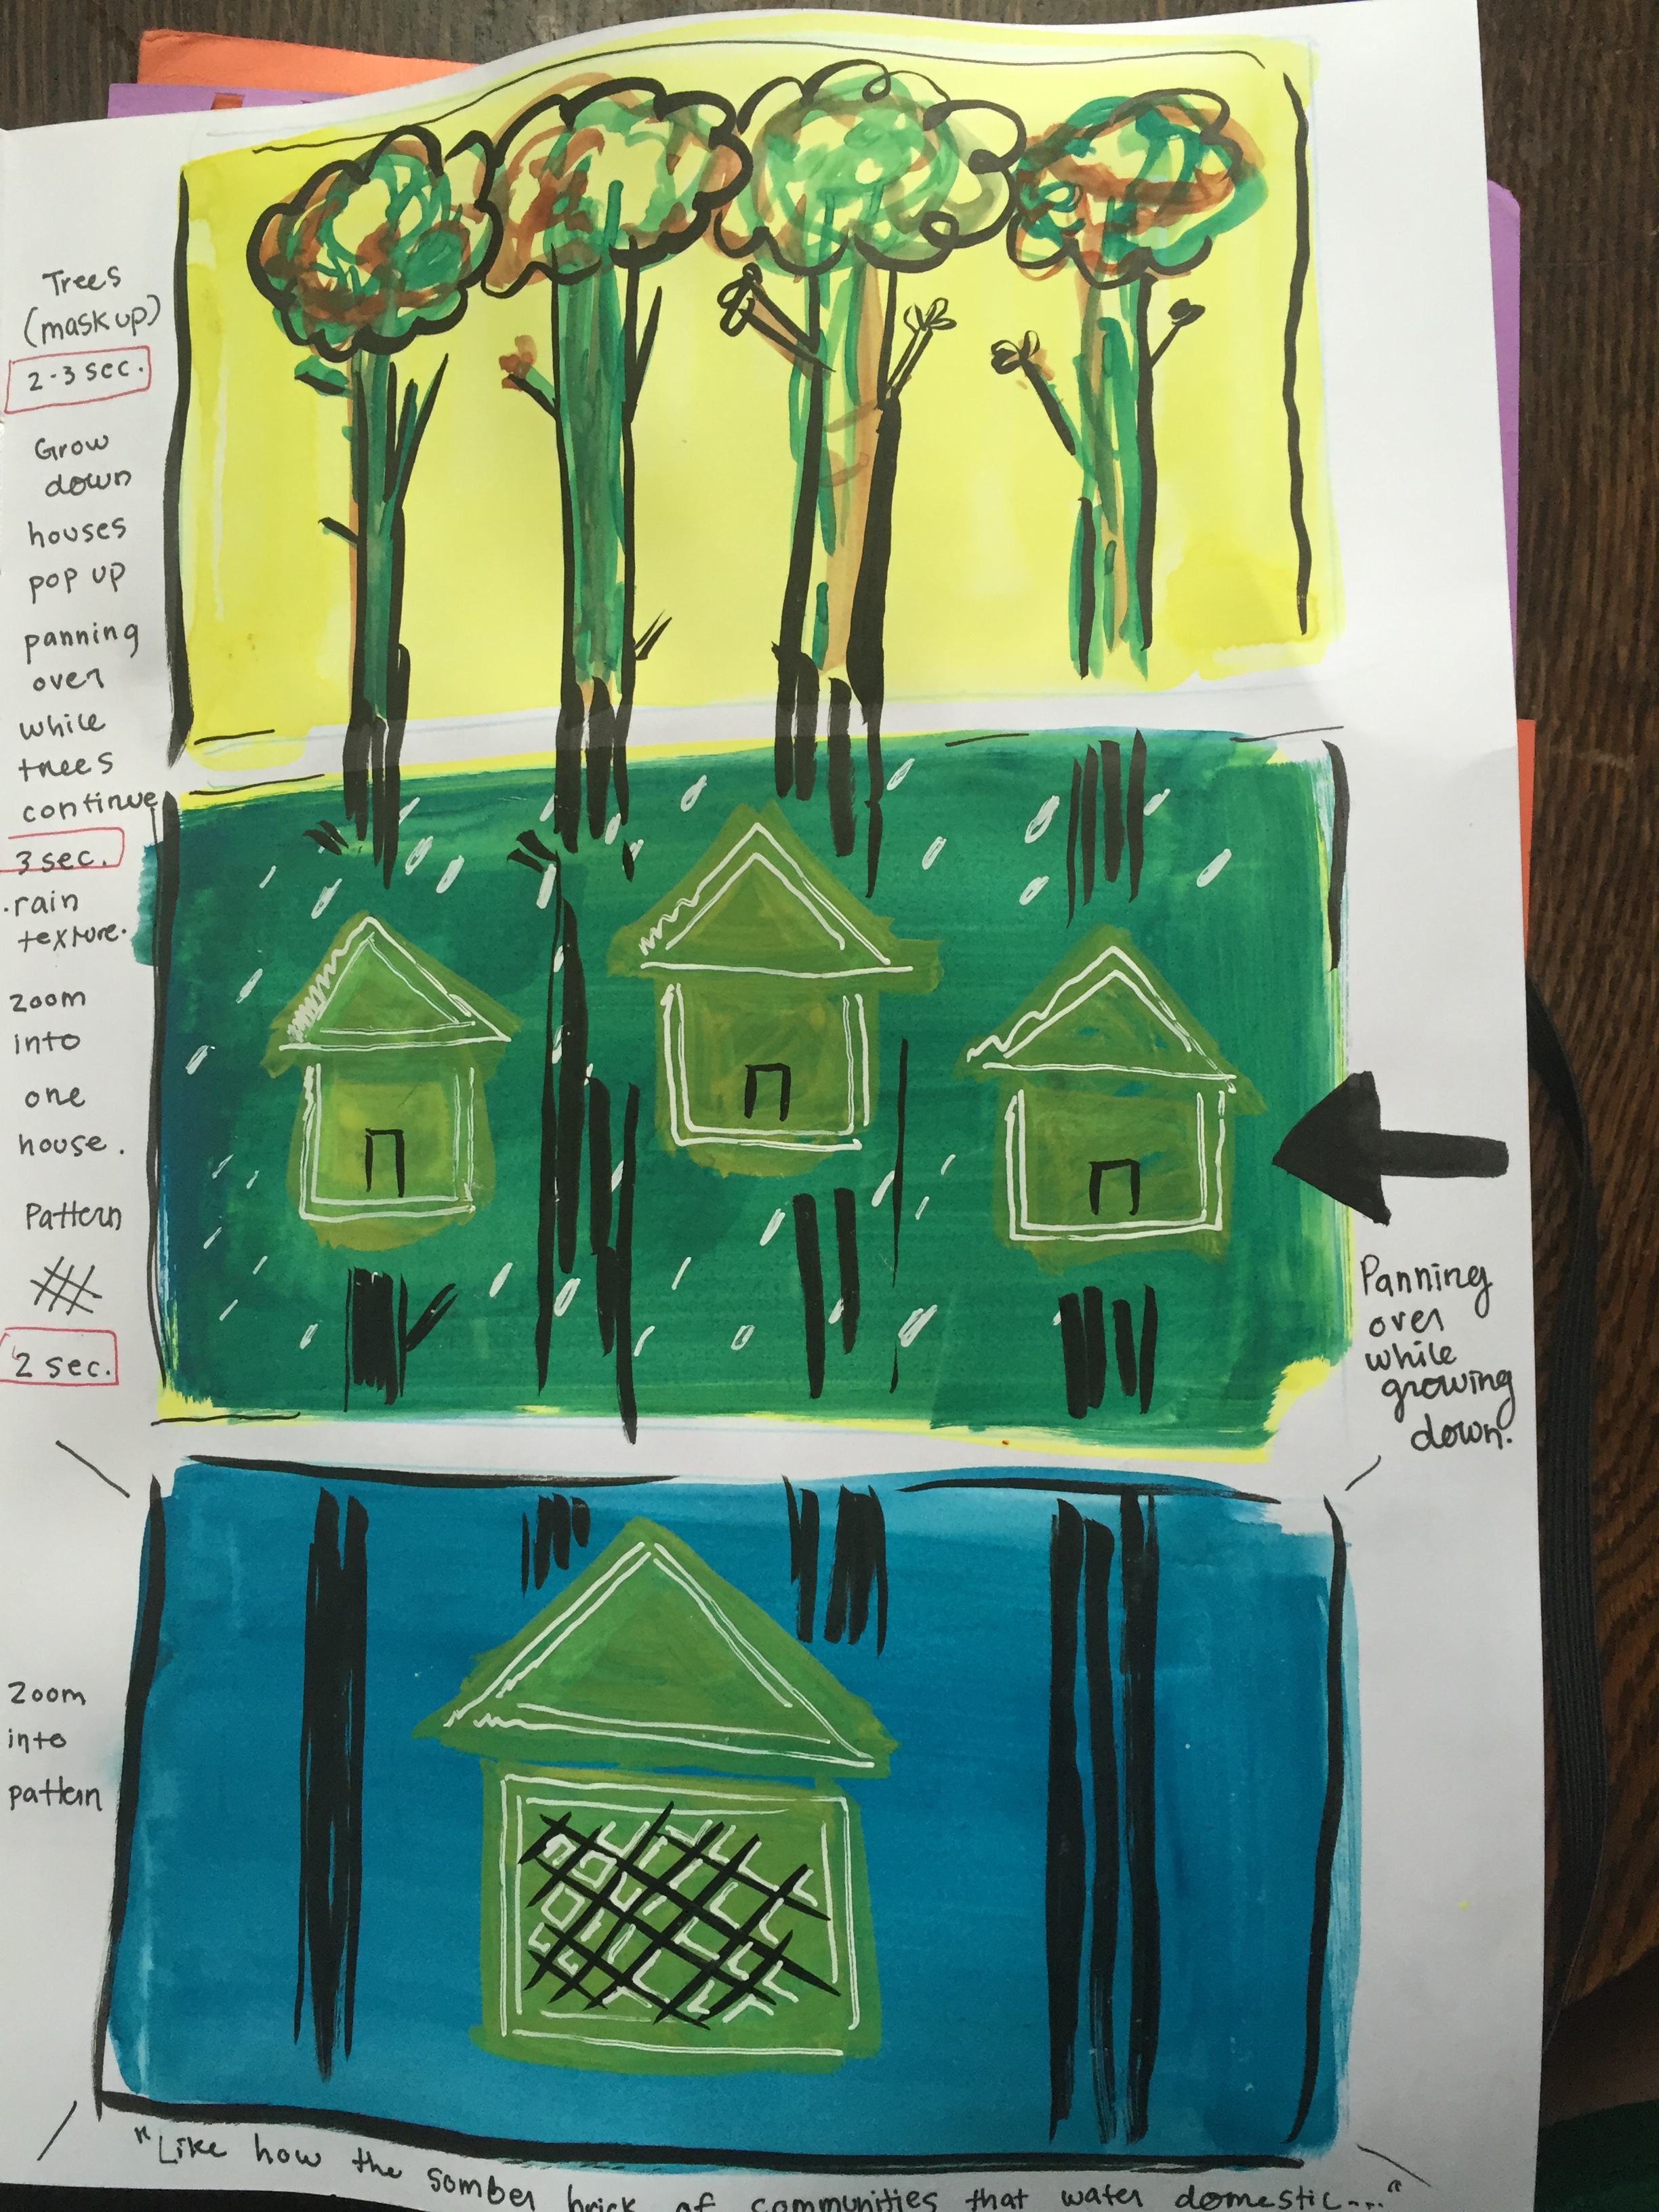 Trees
(mask up)
2-3 sec.
Grow
down
houses
pop up
panning
over
while
trees
continue
3 sec.
.rain
texture.
zoom
into
one
house.
Pattern
2 sec.
Zoom
into
pattern
Panning
over
while
growing
down.
"Like how the somber brick of communities that water domestic..."